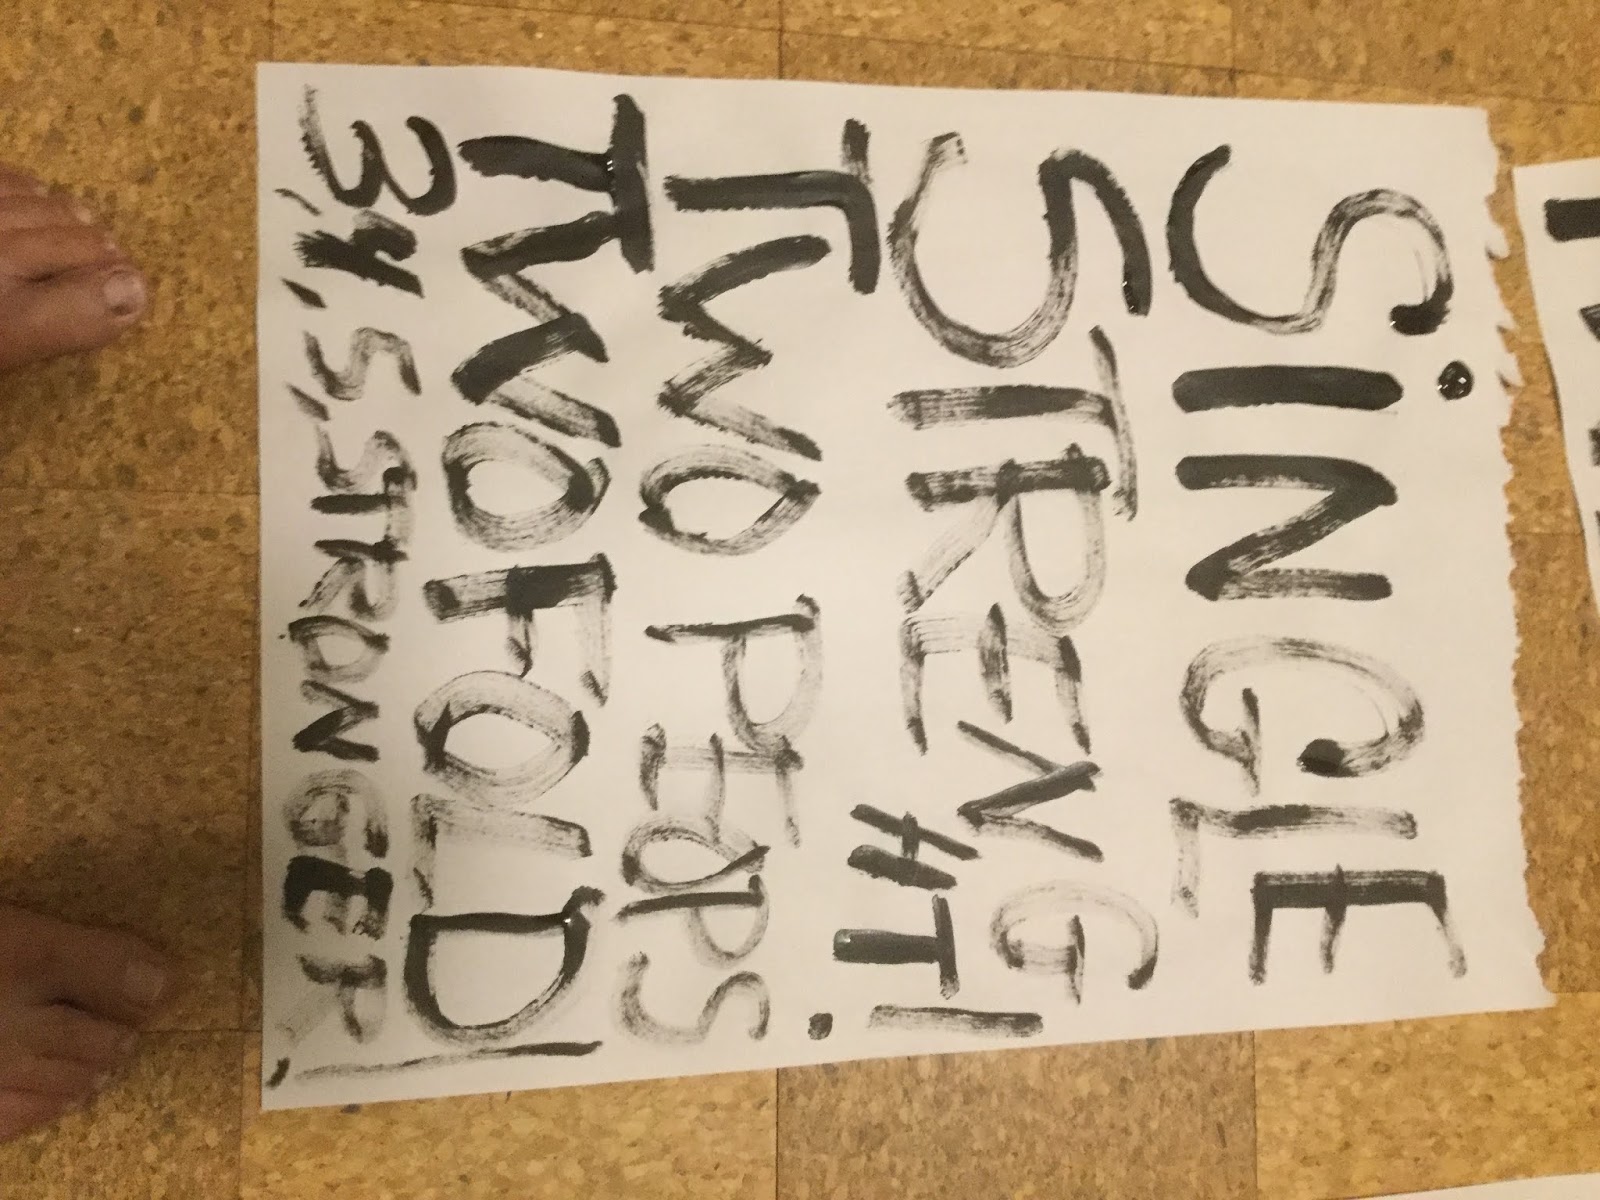 SiNGLE
STRENGHT!
TWO PEOPS
TWOFOLD!
3,4,5,STRONGER!